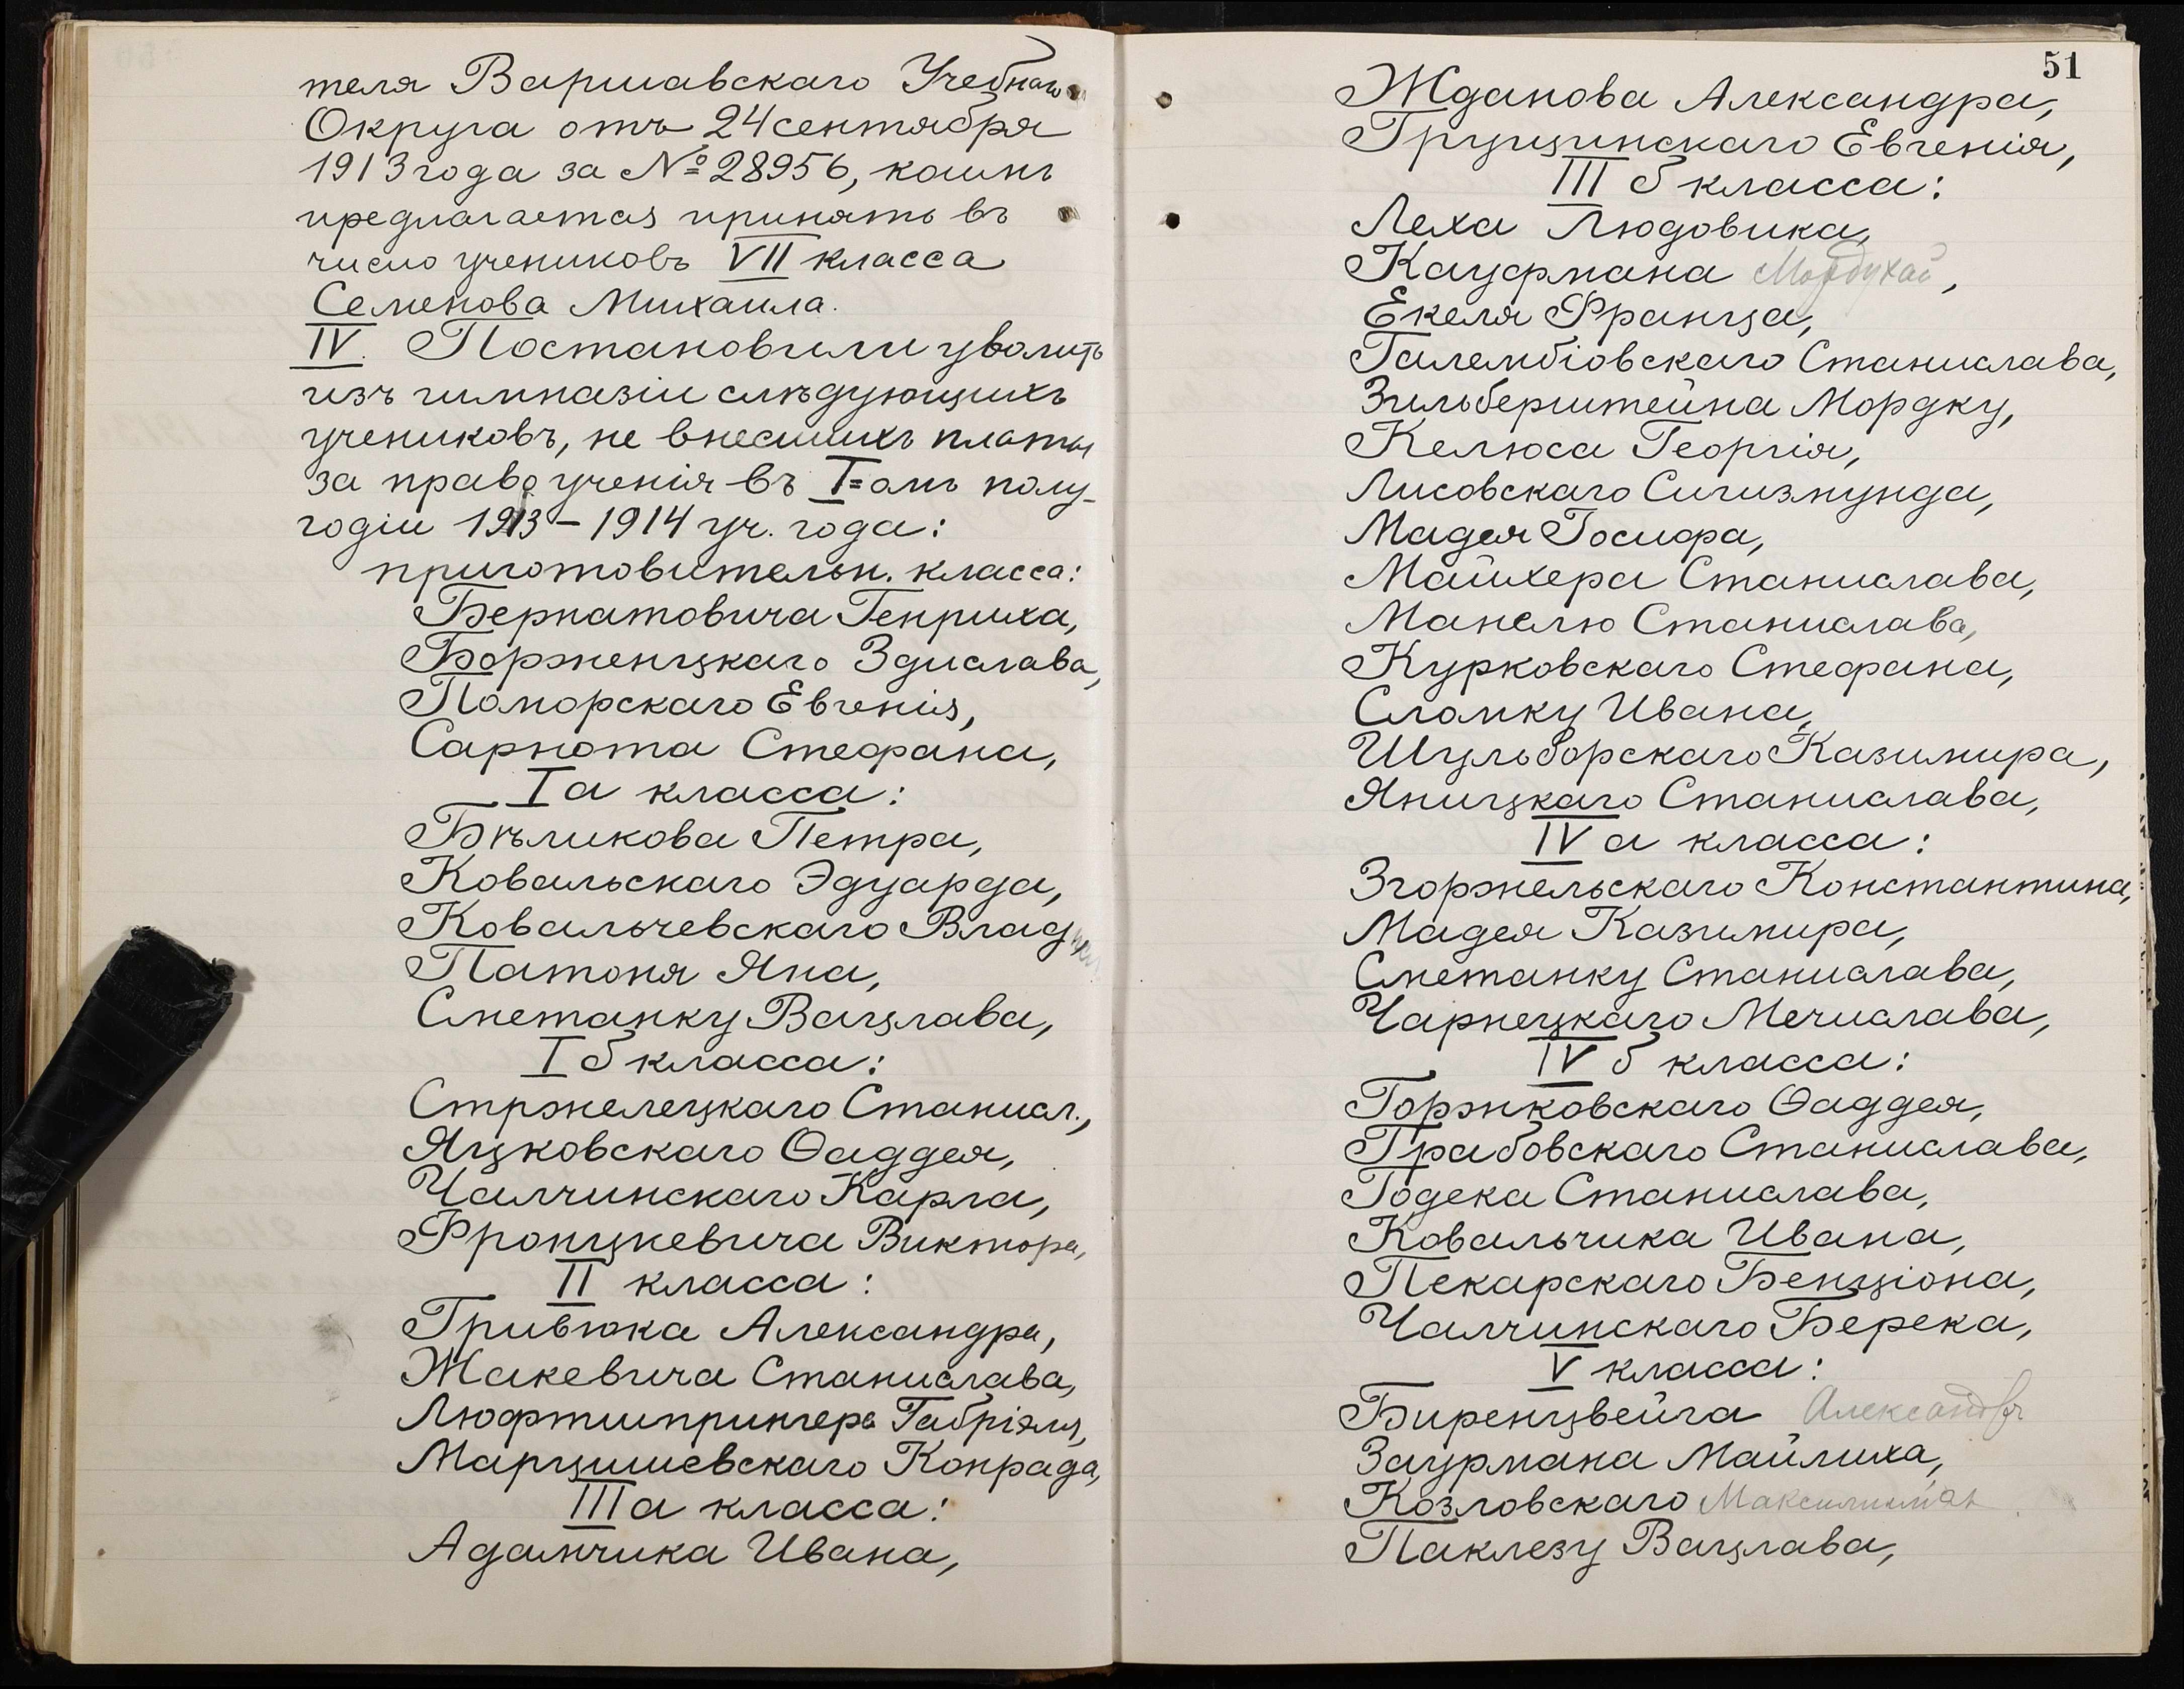 теля Варшавскаго Учебнаго
Округа отъ 24 сентября
1913 года за № 28956, коимъ
предлагается принять въ
число учениковъ VII класса
Семенова Михаила.
IV. Постановили уволить
изъ гимназіи слѣдующихъ
учениковъ, не внесшихъ платы
за право ученія въ I=омъ полу-
годіи 1913 – 1914 уч. года:
приготовительн. класса:
Бернатовича Генриха,
Борженцкаго Здислава,
Поморскаго Евгенія,
Сарнота Стефана,
Iа класса:
Бѣликова Петра,
Ковальскаго Эдуарда,
Ковальчевскаго Влад
Патоня Яна,
Сметанку Вацлава,
I б класса:
Стржелецкаго Станисл.,
Яцковскаго Ѳаддея,
Чалчинскаго Карла,
Фронцкевича Виктора,
II класса:
Гривюка Александра,
Жакевича Станислава,
Люфтшпрингера Габріэля,
Марцишевскаго Конрада,
IIIа класса:
Адамчика Ивана,
51
Жданова Александра,
Грущинскаго Евгенія,
III б класса:
Леха Людовика,
Кауфмана Мордухай,
Екеля Франца,
Галембіовскаго Станислава,
Зильберштейна Мордку,
Келюса Георгія,
Лисовскаго Сигизмунда,
Мадея Іосифа,
Майхера Станислава,
Манелю Станислава,
Курковскаго Стефана,
Сломку Ивана,
Шульборскаго Казимира,
Яницкаго Станислава,
IV а класса:
Згоржельскаго Константина,
Мадея Казимира,
Сметанку Станислава,
Чарнецкаго Мечислава,
IV б класса:
Горжковскаго Ѳаддея,
Грабовскаго Станислава,
Годека Станислава,
Ковальчика Ивана,
Пекарскаго Бенціона,
Чалчинскаго Берека,
V класса:
Биренцвейга Александръ
Заурмана Майлиха,
Козловскаго Максимилиан
Паклезу Вацлава,